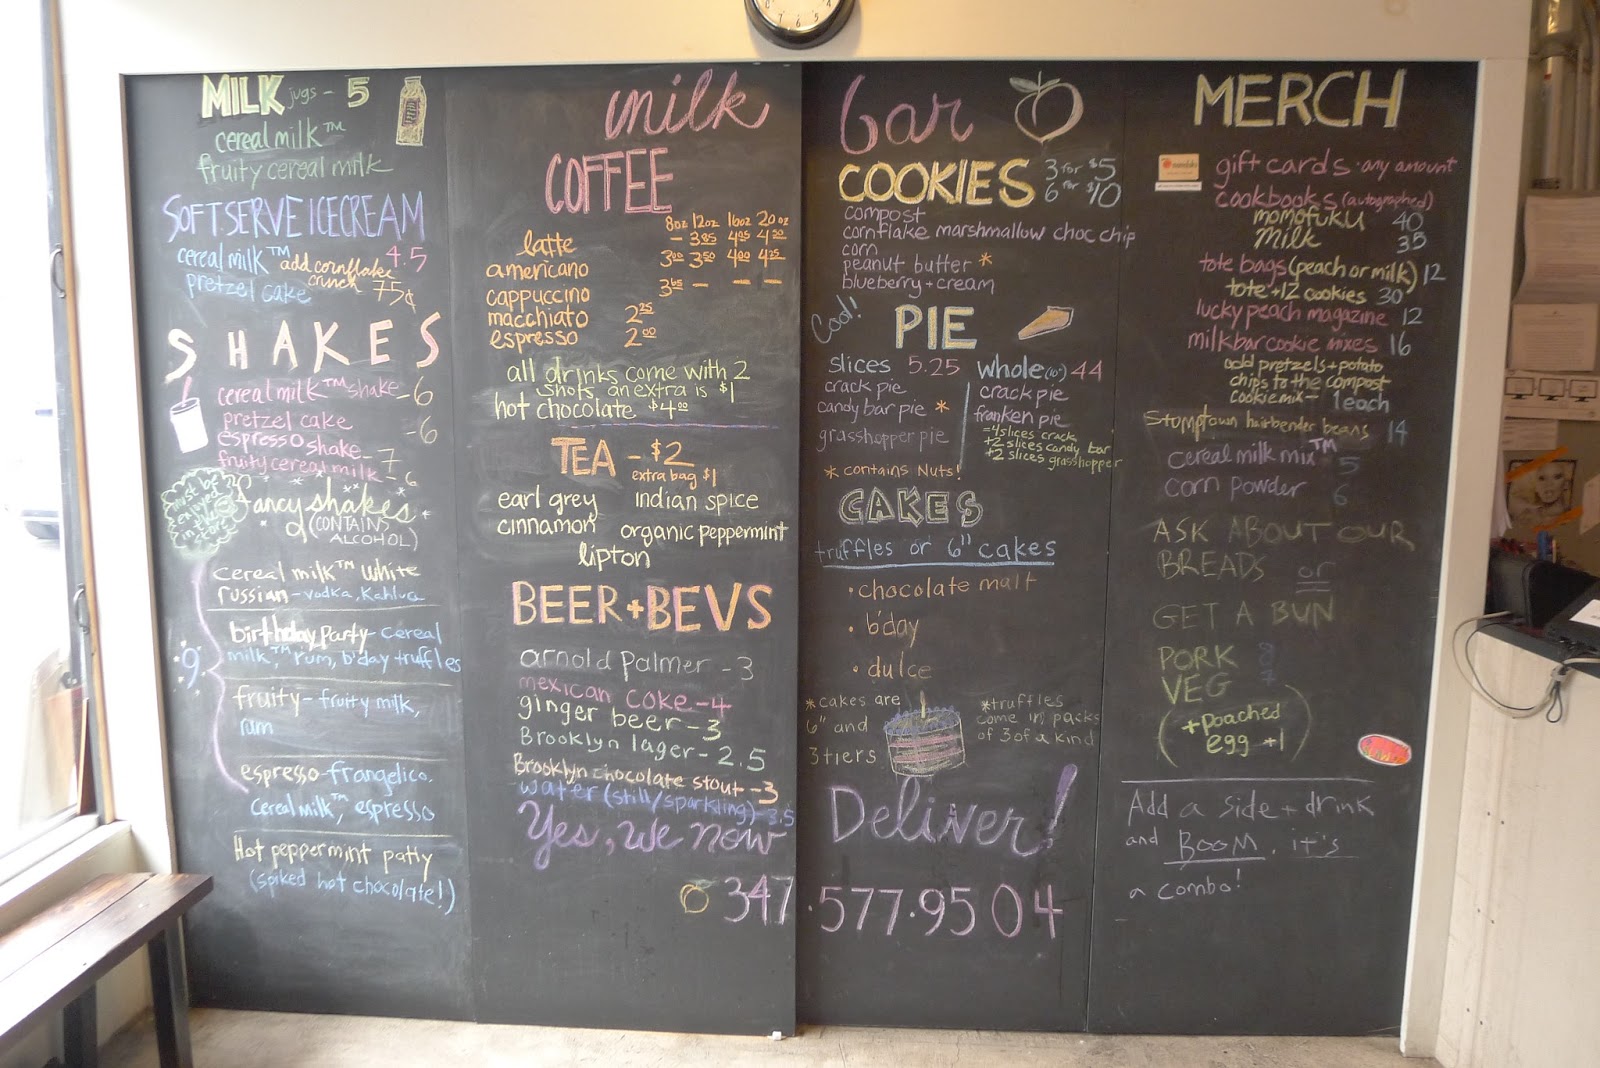 MILK jugs - 5
cereal milk™
fruity cereal milk
SOFT SERVE ICE CREAM
cereal milk™ 4.5
add cornflake
crunch 75¢
pretzel cake
SHAKES
cereal milk™ shake - 6
pretzel cake - 6
espresso shake - 7
fruity cereal milk - 6
must be
enjoyed
in the
store
fancy shakes
(CONTAINS
ALCOHOL)
9
cereal milk™ white
russian - vodka, kahlua
birthday party - cereal
milk,™ rum, b'day truffles
fruity - fruity milk,
rum
espresso - frangelico,
cereal milk,™ espresso
Hot peppermint patty
(spiked hot chocolate!)
milk
COFFEE
8oz 12oz 16oz 20oz
latte - 3.85 4.05 4.50
americano 3.00 3.50 4.00 4.25
cappuccino 3.65 - - -
macchiato 2.25
espresso 2.00
all drinks come with 2
shots, an extra is $1
hot chocolate $4.00
TEA - $2
extra bag $1
earl grey indian spice
cinnamon organic peppermint
lipton
BEER + BEVS
arnold palmer - 3
mexican coke - 4
ginger beer - 3
Brooklyn lager - 2.5
Brooklyn chocolate stout - 3
water (still/sparkling) - 3.5
Yes, we now
347
bar
COOKIES 3 for $5
6 for $10
compost
cornflake marshmallow choc chip
corn
peanut butter *
blueberry + cream
Cool!
PIE
slices 5.25
crack pie
candy bar pie *
grasshopper pie
whole (10") 44
crack pie
franken pie
= 4 slices crack
+2 slices candy bar
+2 slices grasshopper
* contains Nuts!
CAKES
truffles or 6" cakes
• chocolate malt
• b'day
• dulce
* cakes are
6" and
3 tiers
* truffles
come in packs
of 3 of a kind
Deliver!
.577.9504
MERCH
momofuku
gift cards - any amount
cookbooks (autographed)
momofuku 40
milk 35
tote bags (peach or milk) 12
tote + 12 cookies 30
lucky peach magazine 12
milkbar cookie mixes 16
add pretzels + potato
chips to the compost
cookie mix - 1 each
Stumptown hairbender beans 14
cereal milk mix™ 5
corn powder 6
ASK ABOUT OUR
BREADS or
GET A BUN
PORK 8
VEG 7
(+ poached
egg +1)
Add a side + drink
and BOOM, it's
a combo!